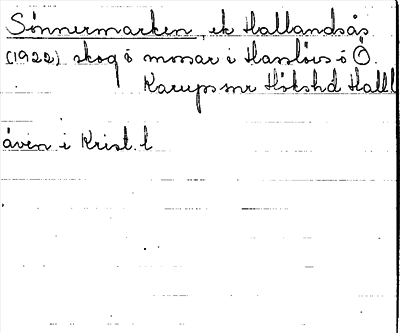 Sönnermarken, ek Hallandsås
(1922) skog o mossar i Hasslövs o Ö.
Karups snr Hökshd Hall l
även i Krist. l